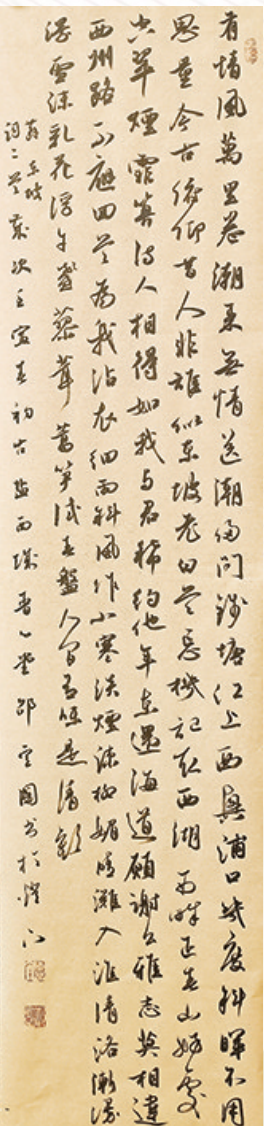 有情風萬里卷潮來無情送潮歸問錢塘江上西興浦口幾度斜暉不用
思量今古俯仰昔人非誰似東坡老白首忘機記取西湖西畔正春山好處
空翠煙霏算詩人相得如我與君稀約他年東還海道願謝公雅志莫相違
西州路不應回首為我沾衣細雨斜風作小寒淡煙疏柳媚晴灘入淮清洛漸漫
漫雪沫乳花浮午盞蓼茸蒿筍試春盤人間有味是清歡
東坡
詞二首歲次壬寅春初古堂邵雲國書於